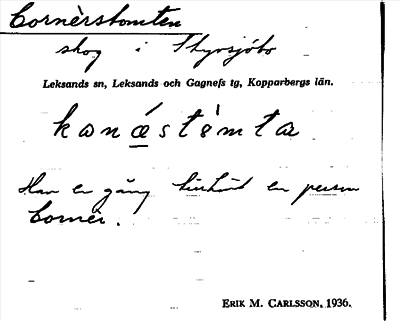 Cornèrstomten
skog i Thyrsjöbo
Leksands sn, Leksands och Gagnefs tg, Kopparbergs län.
kanǽstòmtar
Har en gång tillhört en person
Cornèr.
ERIK M. CARLSSON, 1936.